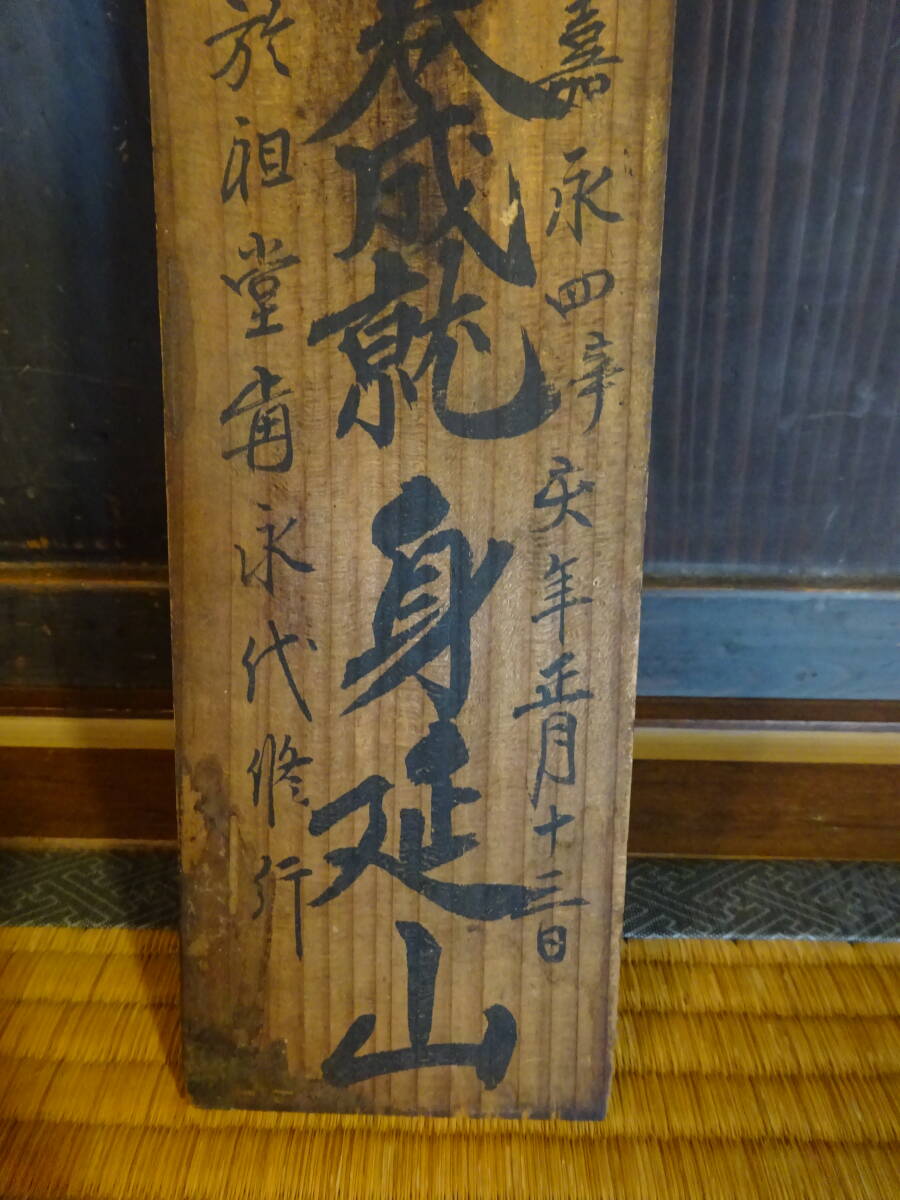 嘉永四辛亥年正月十三日
成就 身延山
於祖堂前永代修行